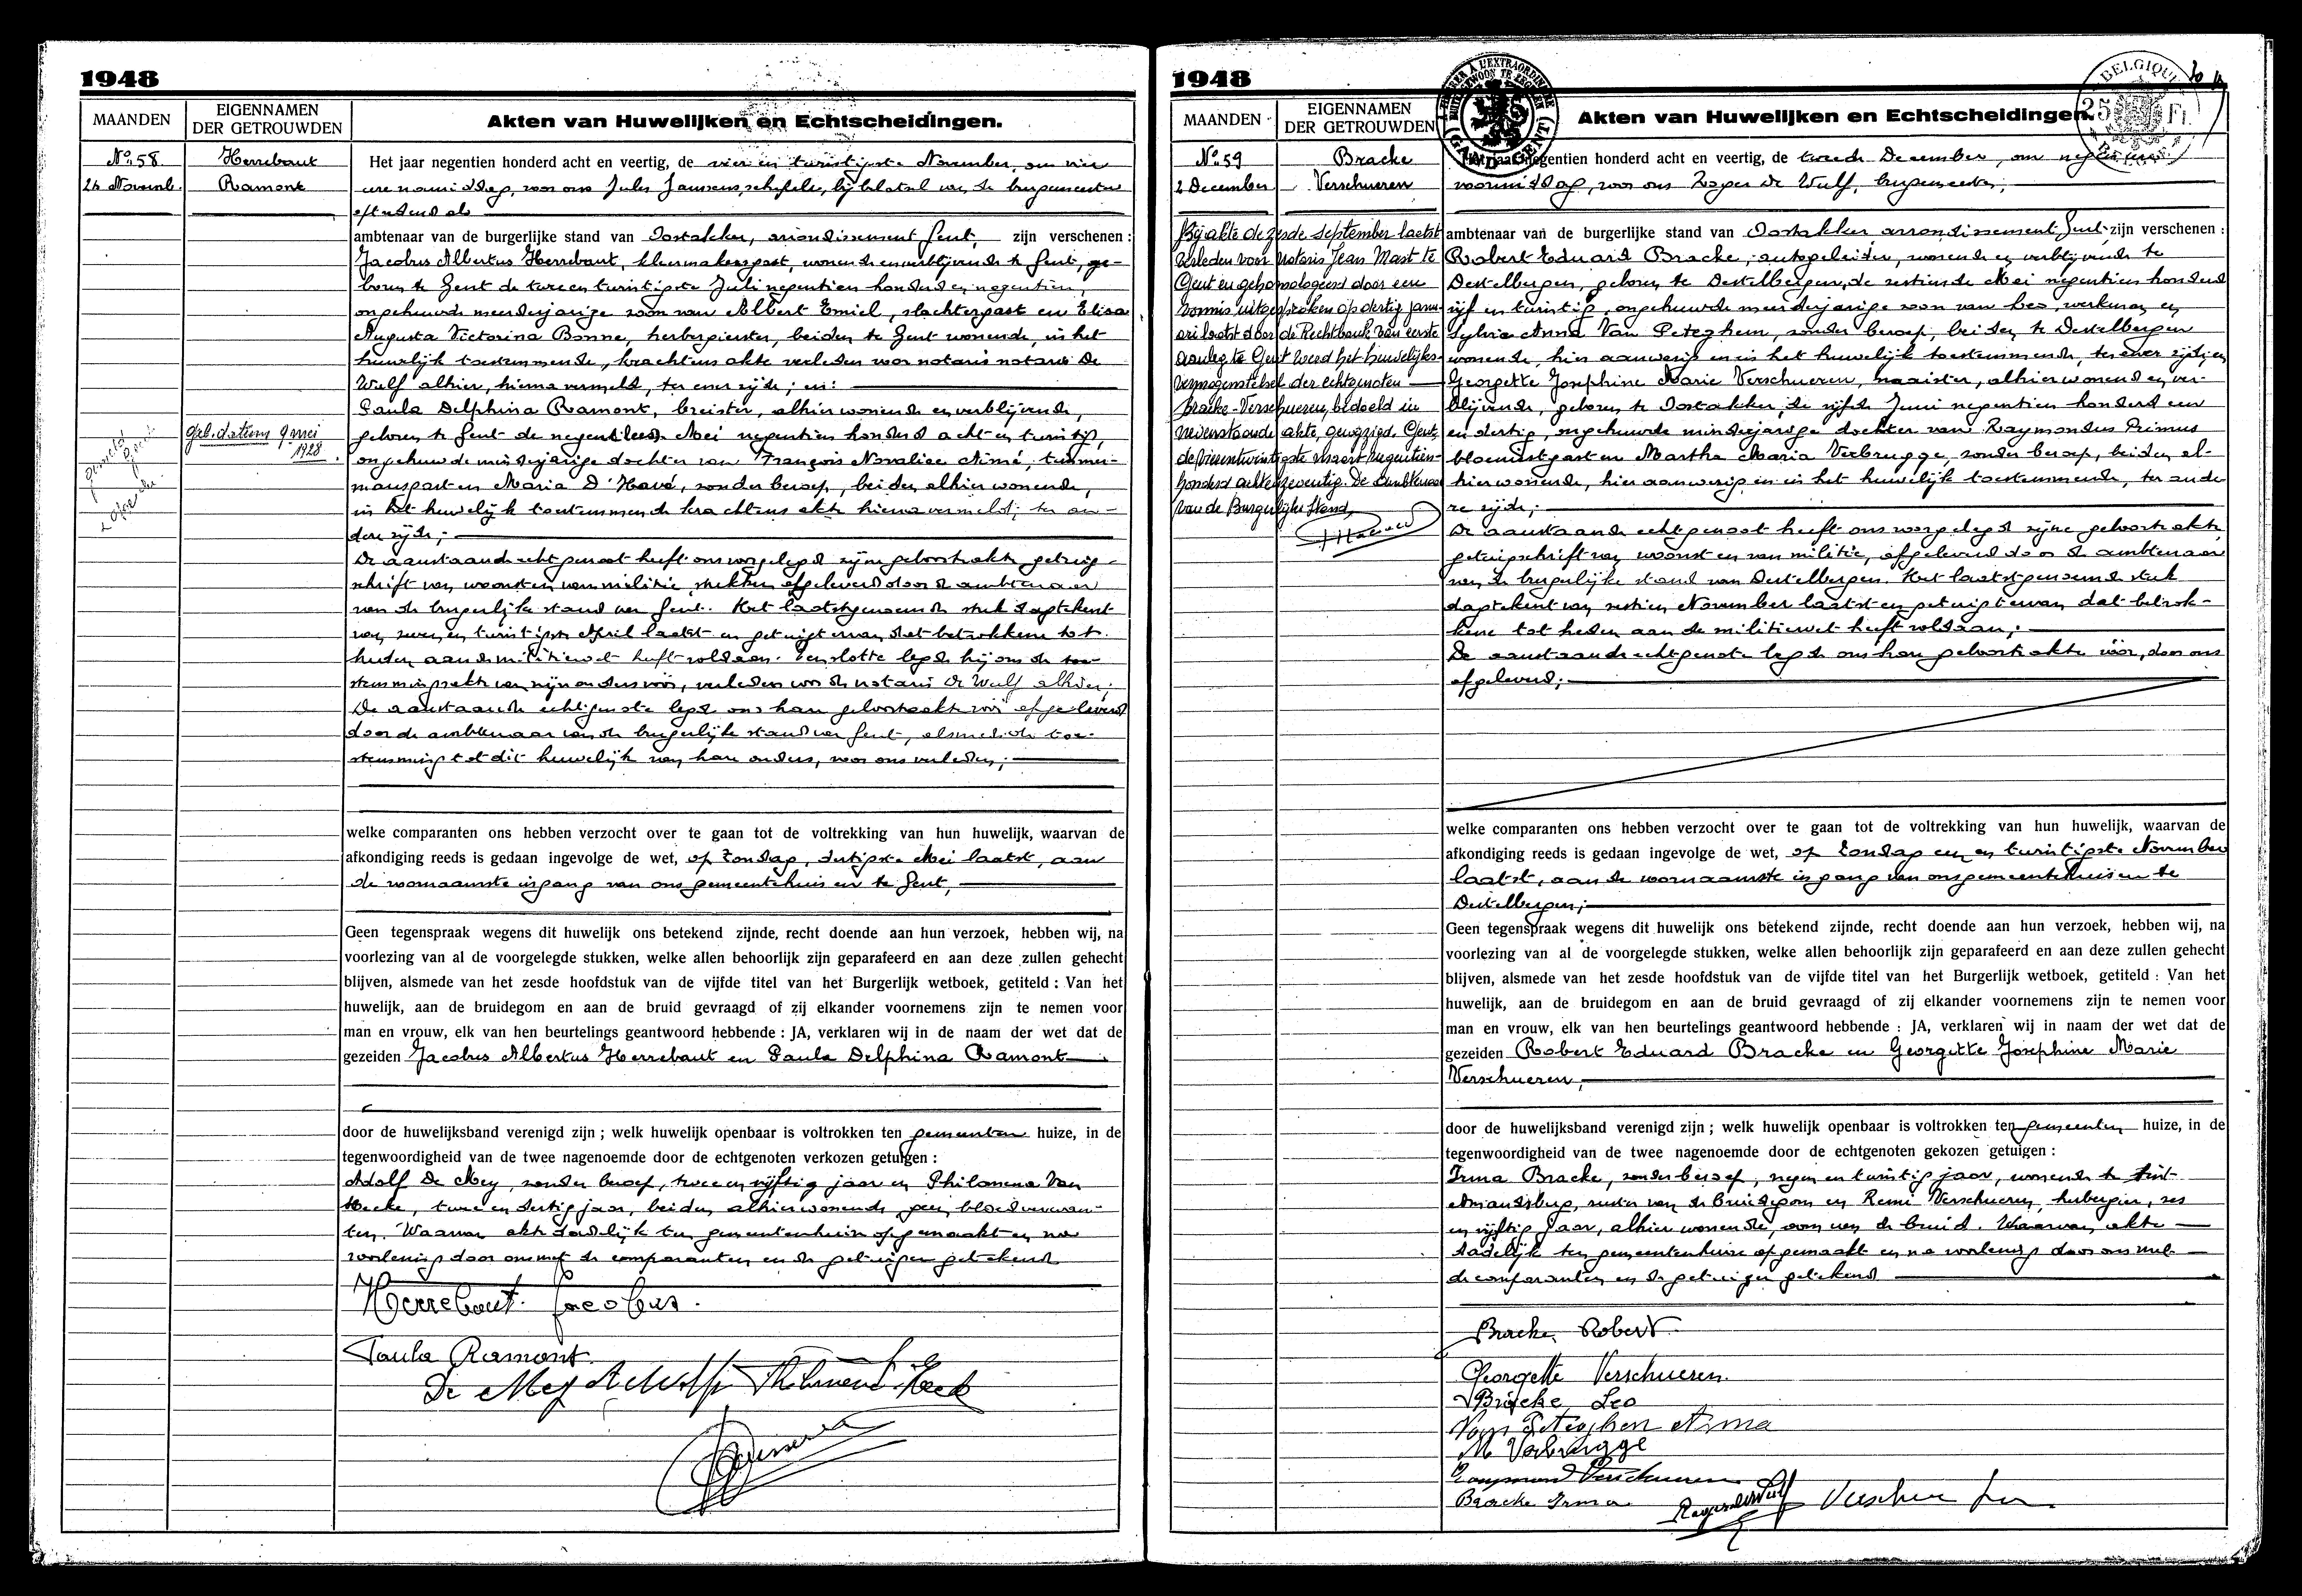 1948
MAANDEN
EIGENNAMEN
DER GETROUWDEN
Akten van Huwelijken en Echtscheidingen.
No 58
24 Novemb.
Herrebaut
Ramont
geb. datum 9 mei
1928
Het jaar negentien honderd acht en veertig, de vier en twintigste November, om vier
ure namiddag, voor ons Jules Janssens, schepen, bij belatsel van de burgemeester
ambtenaar van de burgerlijke stand van Oostakker, arrondissement Gent, zijn verschenen :
Jacobus Albertus Herrebaut, kleermakersgast, wonende en verblijvende te Gent, ge-
boren te Gent de twee en twintigste Juli negentien honderd en negentien,
ongehuwde meerderjarige zoon van Albert Emiel, slachtergast en Elisa
Augusta Victorina Bonne, herbergierster, beiden te Gent wonende, in het
huwelijk toestemmende, krachtens akte verleden voor notaris notaris De
Wulf alhier, hierna vermeld, ter ener zijde ; en :
Paula Delphina Ramont, breister, alhier wonende en verblijvende,
geboren te Gent de negen Mei negentien honderd acht en twintig,
ongehuwde minderjarige dochter van François Novaliae Aimé, timmer-
mansgast en Maria D'Havé, zonder beroep, beiden alhier wonende,
in het huwelijk toestemmende krachtens akte hierna vermeld ; ter an-
dere zijde ;
De aanstaande echtgenoot heeft ons voorgelegd zijne geboorteakte, getuig-
schrift van woonst en van militie, stukken afgeleverd door de ambtenaar
van de burgerlijke stand van Gent. Het laatstgenoemde stuk dagtekent
van zeven en twintigste April laatst en getuigt ervan dat betrokkene tot
heden aan de militiewet heeft voldaan. Tenslotte legde hij ons de toe-
stemmingsakte van zijn ouders voor, verleden voor de notaris De Wulf alhier ;
De aanstaande echtgenote legde ons hare geboorteakte voor afgeleverd
door de ambtenaar van de burgerlijke stand van Gent, alsmede de toe-
stemming tot dit huwelijk van hare ouders, voor ons verleden ;
welke comparanten ons hebben verzocht over te gaan tot de voltrekking van hun huwelijk, waarvan de
afkondiging reeds is gedaan ingevolge de wet, op Zondag, dertigste Mei laatst, aan
de voornaamste ingang van ons gemeentehuis en te Gent,
Geen tegenspraak wegens dit huwelijk ons betekend zijnde, recht doende aan hun verzoek, hebben wij, na
voorlezing van al de voorgelegde stukken, welke allen behoorlijk zijn geparafeerd en aan deze zullen gehecht
blijven, alsmede van het zesde hoofdstuk van de vijfde titel van het Burgerlijk wetboek, getiteld : Van het
huwelijk, aan de bruidegom en aan de bruid gevraagd of zij elkander voornemens zijn te nemen voor
man en vrouw, elk van hen beurtelings geantwoord hebbende : JA, verklaren wij in de naam der wet dat de
gezeiden Jacobus Albertus Herrebaut en Paula Delphina Ramont
door de huwelijksband verenigd zijn ; welk huwelijk openbaar is voltrokken ten gemeenten huize, in de
tegenwoordigheid van de twee nagenoemde door de echtgenoten verkozen getuigen :
Adolf De Mey, zonder beroep, twee en vijftig jaar en Philomena Van
Hecke, twee en dertig jaar, beiden alhier wonende, geen bloedverwan-
ten. Waarvan akte dadelijk ten gemeentenhuize opgemaakt en na
voorlezing door ons met de comparanten en de getuigen getekend
Herrebaut Jacobus.
Paula Ramont.
De Mey Adolf
1948
MAANDEN
EIGENNAMEN
DER GETROUWDEN
Akten van Huwelijken en Echtscheidingen.
BELGIQUE
25 Fr.
No 59
2 December
Bracke
Verschueren
Bij akte de zesde september laatst
verleden voor notaris Jean Mast te
Gent en gehomologeerd door een
vonnis uitgesproken op dertig janu-
ari laatst door de Rechtbank van eerste
aanleg te Gent werd het huwelijks-
vermogenstelsel der echtgenoten
Bracke-Verschueren, bedoeld in
nevenstaande akte, gewijzigd. Gent,
de vierentwintigste maart negentien-
honderd achtenzeventig. De Ambtenaar
van de Burgerlijke Stand,
Het jaar negentien honderd acht en veertig, de tweede December, om negen ure
voormiddag, voor ons Roger de Wulf, burgemeester,
ambtenaar van de burgerlijke stand van Oostakker arrondissement Gent, zijn verschenen :
Robert Eduard Bracke, autogeleider, wonende en verblijvende te
Destelbergen, geboren te Destelbergen, de zestiende Mei negentien honderd
vijf en twintig, ongehuwde meerderjarige zoon van Leo, werkman en
Sylvie Anna Van Peteghem, zonder beroep, beiden te Destelbergen
wonende, hier aanwezig en in het huwelijk toestemmende, ter ener zijde, en
Georgette Josephine Marie Verschueren, naaister, alhier wonend en ver-
blijvende, geboren te Oostakker, de vijfde Juni negentien honderd een
en dertig, ongehuwde minderjarige dochter van Raymondus Primus
bloemistgast en Martha Maria Verbrugge, zonder beroep, beiden al-
hier wonende, hier aanwezig en in het huwelijk toestemmende, ter ande
re zijde ;
De aanstaande echtgenoot heeft ons voorgelegd zijne geboorteakte,
getuigschrift van woonst en van militie, afgeleverd door de ambtenaar
van de burgerlijke stand van Destelbergen. Het laatstgenoemde stuk
dagtekent van zestien November laatst en getuigt ervan dat betrok-
kene tot heden aan de militiewet heeft voldaan ;
De aanstaande echtgenote legde ons hare geboorteakte vóór, door ons
afgeleverd ;
welke comparanten ons hebben verzocht over te gaan tot de voltrekking van hun huwelijk, waarvan de
afkondiging reeds is gedaan ingevolge de wet, op Zondag een en twintigste November
laatst, aan de voornaamste ingang van ons gemeentehuis en te
Destelbergen ;
Geen tegenspraak wegens dit huwelijk ons betekend zijnde, recht doende aan hun verzoek, hebben wij, na
voorlezing van al de voorgelegde stukken, welke allen behoorlijk zijn geparafeerd en aan deze zullen gehecht
blijven, alsmede van het zesde hoofdstuk van de vijfde titel van het Burgerlijk wetboek, getiteld : Van het
huwelijk, aan de bruidegom en aan de bruid gevraagd of zij elkander voornemens zijn te nemen voor
man en vrouw, elk van hen beurtelings geantwoord hebbende : JA, verklaren wij in naam der wet dat de
gezeiden Robert Eduard Bracke en Georgette Josephine Marie
Verschueren,
door de huwelijksband verenigd zijn ; welk huwelijk openbaar is voltrokken ten gemeenten huize, in de
tegenwoordigheid van de twee nagenoemde door de echtgenoten gekozen getuigen :
Irma Bracke, zonder beroep, negen en twintig jaar, wonende te Sint-
Amandsberg, zuster van de bruidegom en Remi Verschueren, herbergier, zes
en vijftig jaar, alhier wonende, oom van de bruid. Waarvan akte
dadelijk ten gemeentenhuize opgemaakt en na voorlezing door ons met
de comparanten en de getuigen getekend
Bracke Robert
Georgette Verschueren.
Bracke Leo
Van Peteghem Anna
M Verbrugge
Raymond Verschueren
Bracke Irma